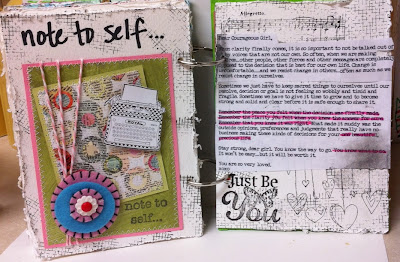 note to self...
note to self...
Allegretto.
Dear Courageous Girl,
When clarity finally comes, it is so important to not be talked out of
by voices that are not our own. So often, when we are making
other people, other forces and other messages are completely
to the decision that is best for our own life. Change is
uncomfortable...and we resist change in others, often as much as we
resist change in ourselves.
Sometimes we just have to keep sacred things to ourselves until our
resolve, decision or goal is not feeling so wobbly and timid and
fragile. Sometimes we have to give it time to grow and to become
strong and solid and clear before it is safe enough to share it.
Remember the peace you felt when the decision was finally made.
Remember the clarity you felt when you knew the answer for sure.
Remember that you knew it was right. What made it muddy was the
outside opinions, preferences and judgments that really have no
business making these kinds of decisions for your one beautiful,
precious life.
Stay strong, dear girl. You know the way to go. You
It won't be easy...but it will be worth it.
You are so very loved.
Just Be
You